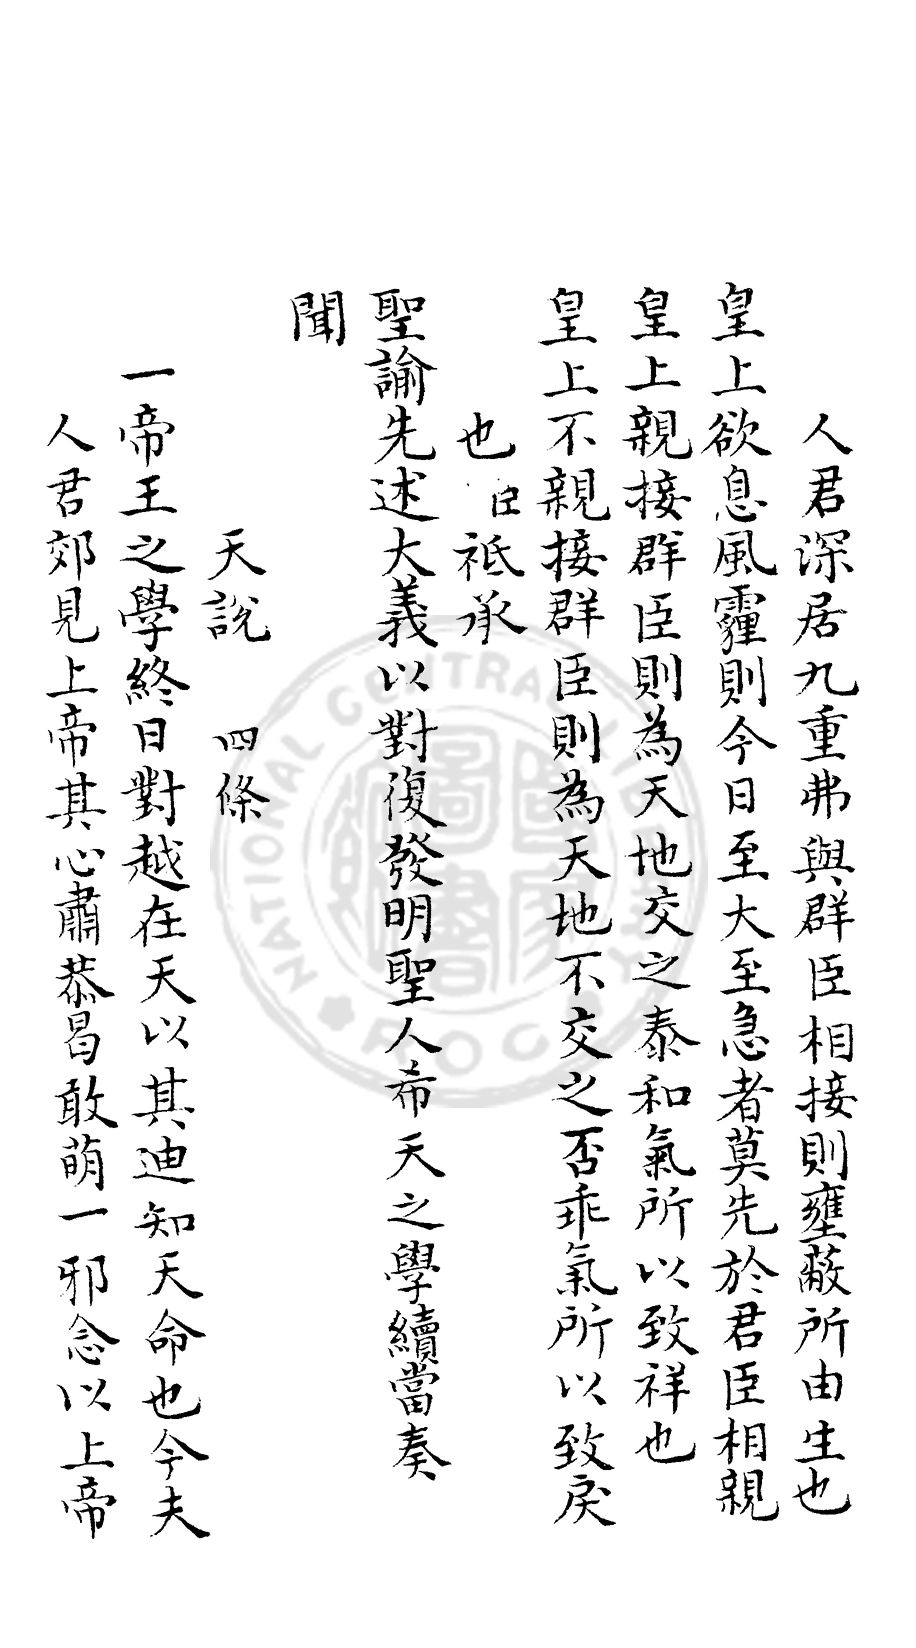 人君深居九重弗與群臣相接則壅蔽所由生也
皇上欲息風霾則今日至大至急者莫先於君臣相親
皇上親接群臣則為天地交之泰和氣所以致祥也
皇上不親接群臣則為天地不交之否乖氣所以致戾
也臣祗承
聖諭先述大義以對復發明聖人希天之學續當奏
聞
天說 四條
一帝王之學終日對越在天以其迪知天命也今夫
人君郊見上帝其心肅恭曷敢萌一邪念以上帝
NATIONAL CENTRAL LIBRARY
R.O.C.